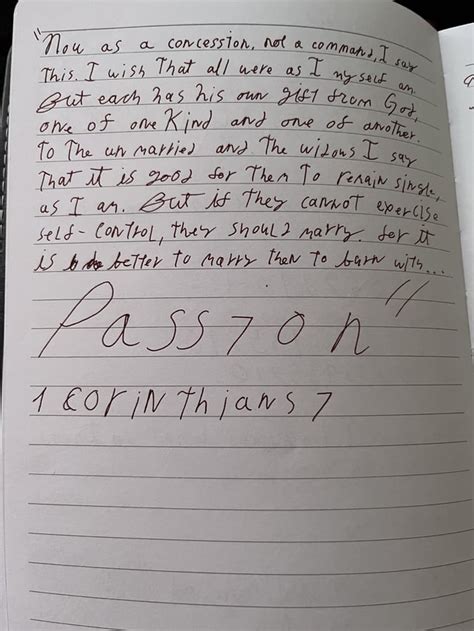 "Now as a concession, not a command, I say
This. I wish That all were as I myself am.
But each has his own gift from God,
one of one Kind and one of another.
To The unmarried and The widows I say
That it is good for Them To remain single,
as I am. But if they cannot exercise
self-control, they should marry. for it
is better to marry then to burn with...
Passion"
1 Corinthians 7